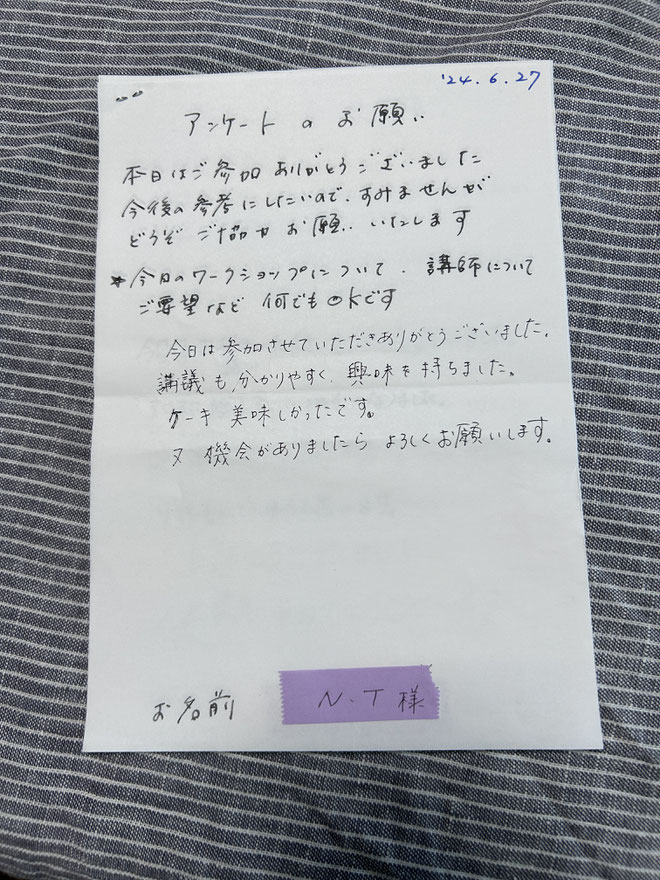 '24.6.27
アンケートのお願い
本日はご参加ありがとうございました
今後の参考にしたいので、すみませんが
どうぞご協力お願いいたします
*今日のワークショップについて、講師について
ご要望など何でもokです
今日は参加させていただきありがとうございました。
講議も分かりやすく、興味を持ちました。
ケーキ美味しかったです。
又機会がありましたらよろしくお願いします。
お名前 N.T様